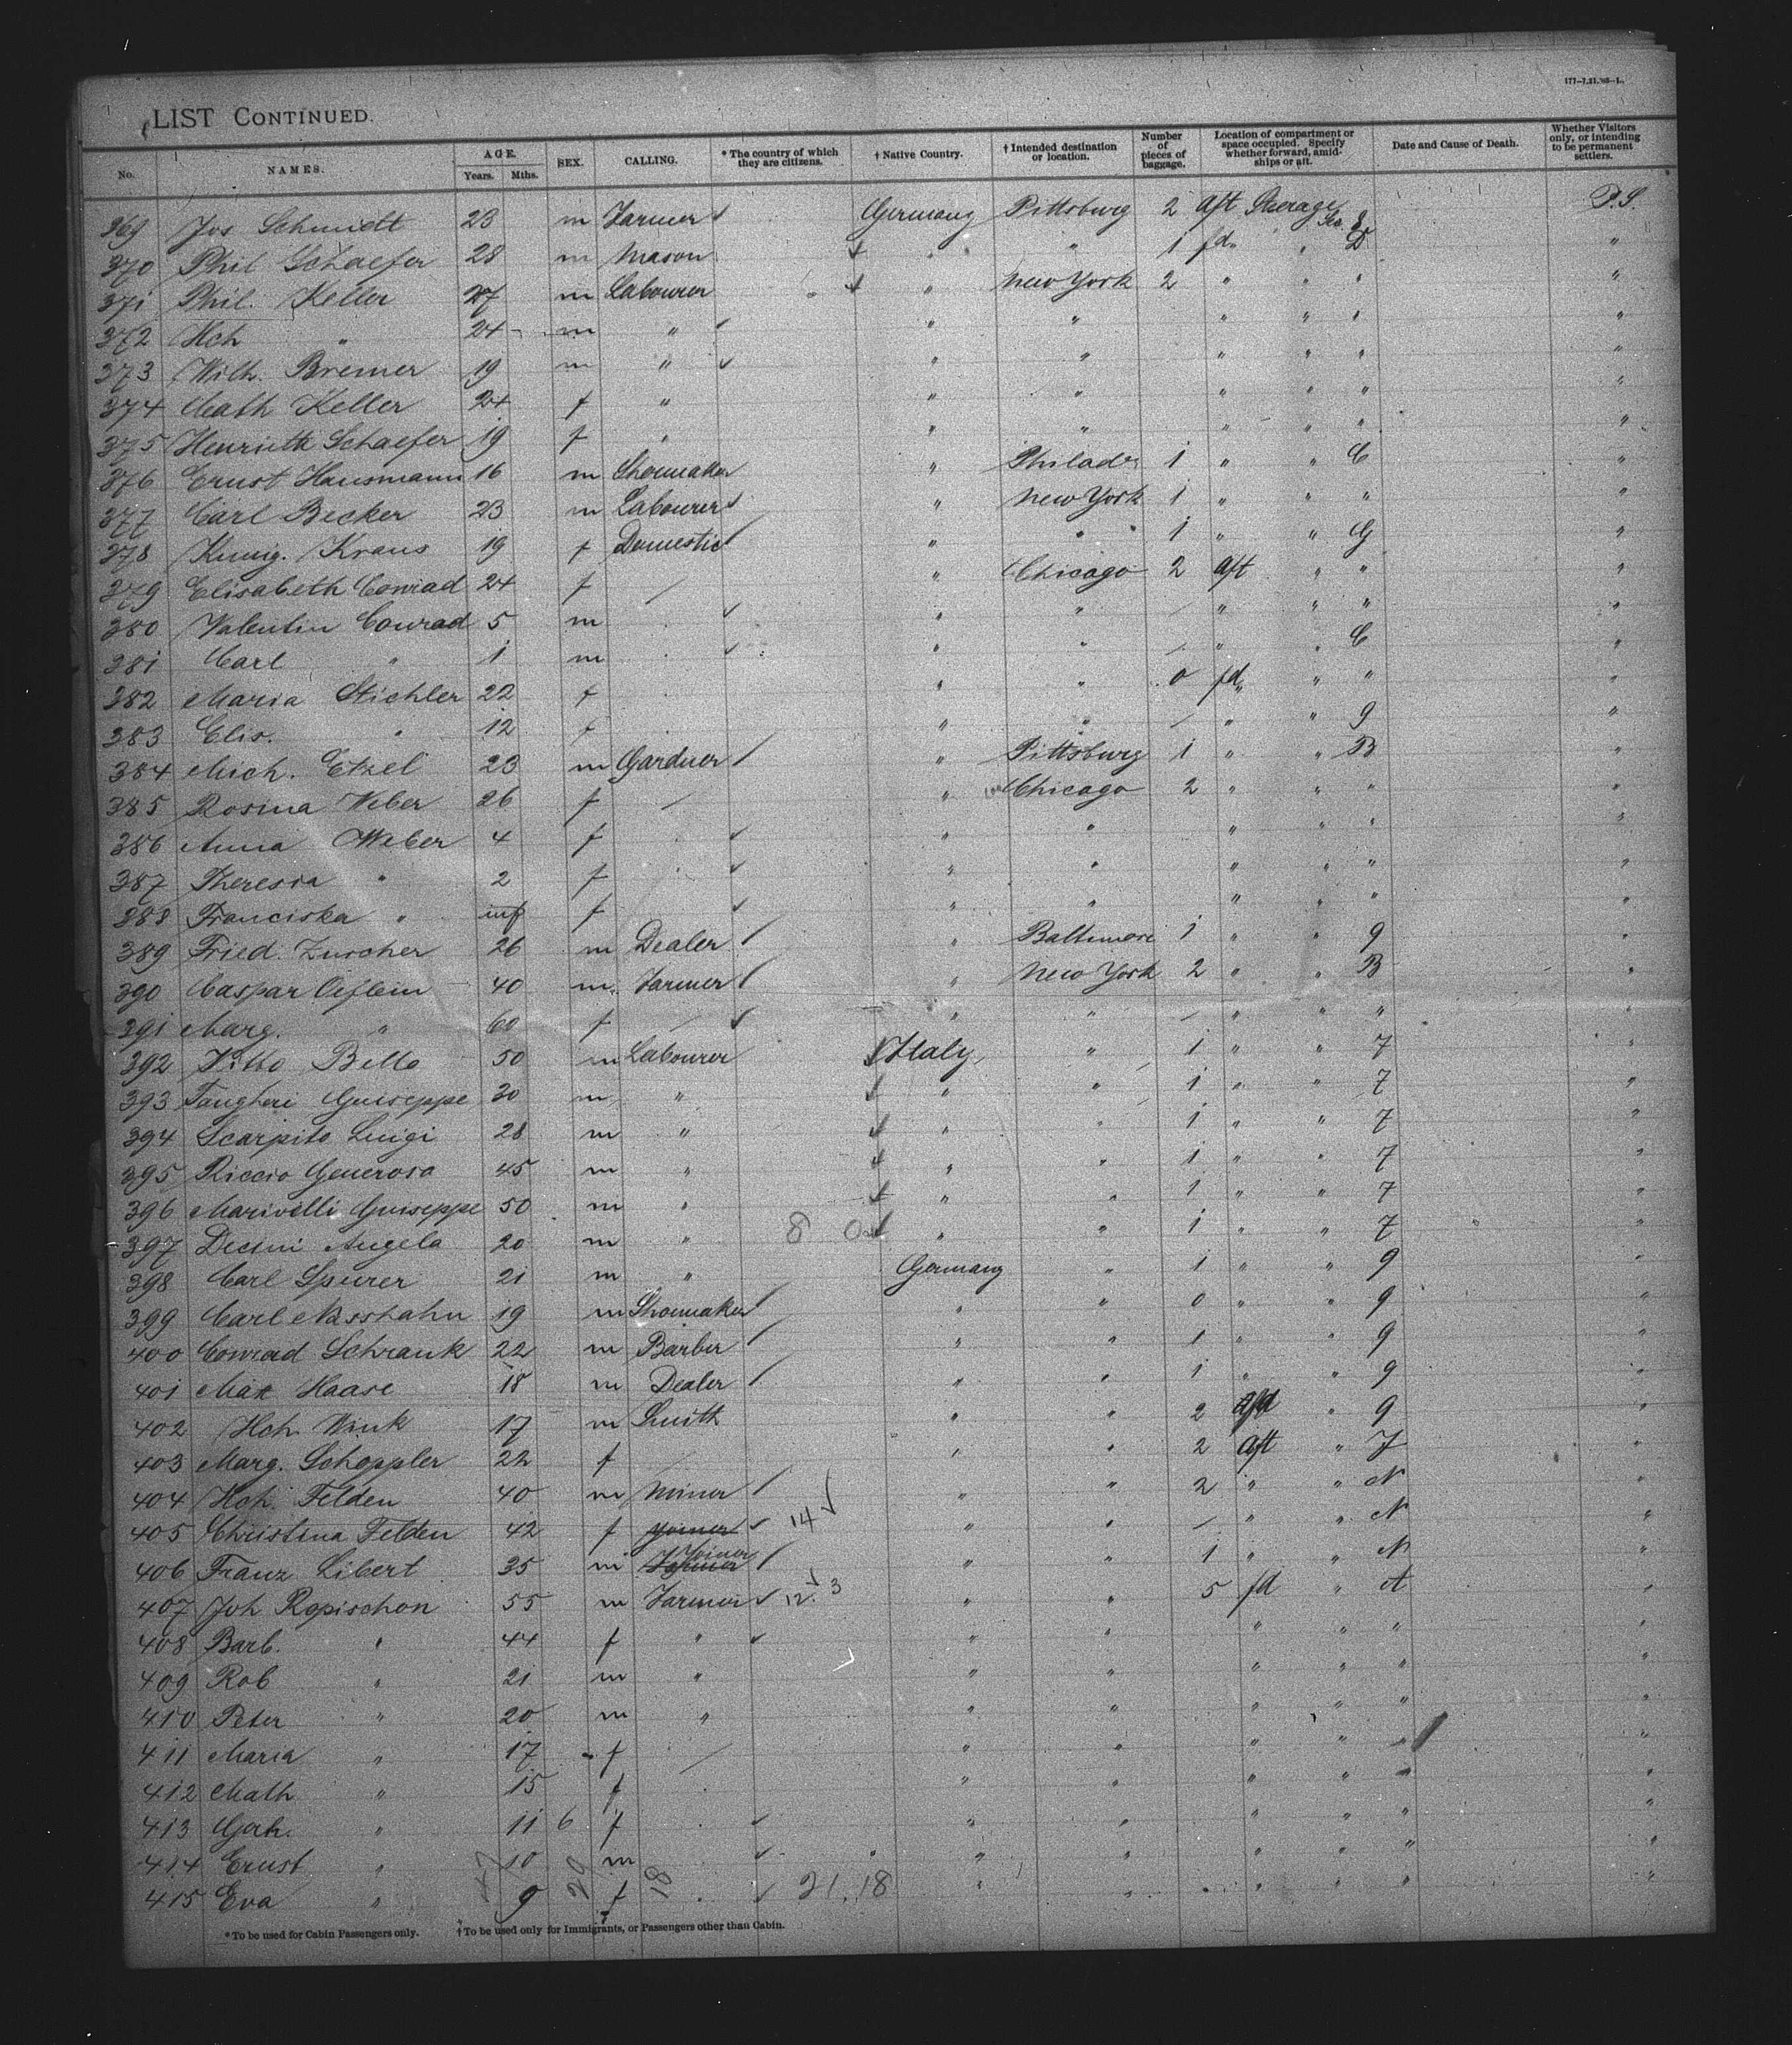 177-7.21.'93-1.
LIST CONTINUED.
No. NAMES. AGE. Years. Mths. SEX. CALLING. * The country of which they are citizens. † Native Country. † Intended destination or location. Number of pieces of baggage. Location of compartment or space occupied. Specify whether forward, amidships or aft. Date and Cause of Death. Whether Visitors only, or intending to be permanent settlers.
369 Jos Schmidt 23 m Farmer Germany Pittsburg 2 Aft Steerage P.S.
370 Phil Schaefer 28 m Mason " " 1 fd " " D "
371 Phil. Keller 27 m Labourer " New York 2 " " " "
372 Hch " 24 m " " " " " " "
373 Wilh. Bremer 19 m " " " " " " "
374 Math Keller 24 f " " " " " " "
375 Henrieth Schaefer 19 f " " " " " " "
376 Ernst Hausmann 16 m Shoemaker " Philada 1 " " C "
377 Carl Becker 23 m Labourer " New York 1 " " " "
378 Kunig. Kraus 19 f Domestic " " 1 " " G "
379 Elisabeth Conrad 24 f / " Chicago 2 Aft " " "
380 Valentin Conrad 5 m " " / " " " "
381 Carl " 1 m " " / " " C "
382 Maria Stichler 22 f " " 0 fd " " " "
383 Elis. " 12 f " " / " " 9 "
384 Mich. Etzel 23 m Gardner " Pittsburg 1 " " B "
385 Rosina Weber 26 f / " Chicago 2 " " " "
386 Anna Weber 4 f " " " " " "
387 Theresia " 2 f " " " " " "
388 Franciska " inf f " " " " " "
389 Fried. Zurcher 26 m Dealer " Baltimore 1 " " 9 "
390 Caspar Oeflein 40 m Farmer " New York 2 " " B "
391 Marg. " 60 f / " " / " " " "
392 Vitto Bello 50 m Labourer Italy " 1 " " 7 "
393 Tangheri Guiseppe 30 m " " " 1 " " 7 "
394 Scarpito Luigi 28 m " " " 1 " " 7 "
395 Riccio Generosa 45 m " " " 1 " " 7 "
396 Marivelli Guiseppe 50 m " " " 1 " " 7 "
397 Decini Angela 20 m " 8 0 " " 1 " " 7 "
398 Carl Spurer 21 m " Germany " 1 " " 9 "
399 Carl Nasshahn 19 m Shoemaker " " 0 " " 9 "
400 Conrad Schrank 22 m Barber " " 1 " " 9 "
401 Max Haase 18 m Dealer " " 1 " " 9 "
402 Hch Wink 17 m Smith " " 2 " 9 "
403 Marg. Schoppler 22 f / " " 2 Aft " J "
404 Hch. Felden 40 m Miner " " 2 " " N "
405 Christina Felden 42 f 14 " " / " " N "
406 Franz Libert 35 m Joiner " " 1 " " N "
407 Joh Ropischon 55 m Farmer 12. 3 " " 5 fd " A "
408 Barb. " 44 f " " " " " " "
409 Rob " 21 m " " " " " " "
410 Peter " 20 m " " " " " " "
411 Maria " 17 f / " " " " " "
412 Math " 15 f " " " " " "
413 Gerh. " 11 6 f " " " " " "
414 Ernst " 10 m " " " " " "
415 Eva " 9 f 21.18 " " " " " "
47 29 18
* To be used for Cabin Passengers only. † To be used only for Immigrants, or Passengers other than Cabin.